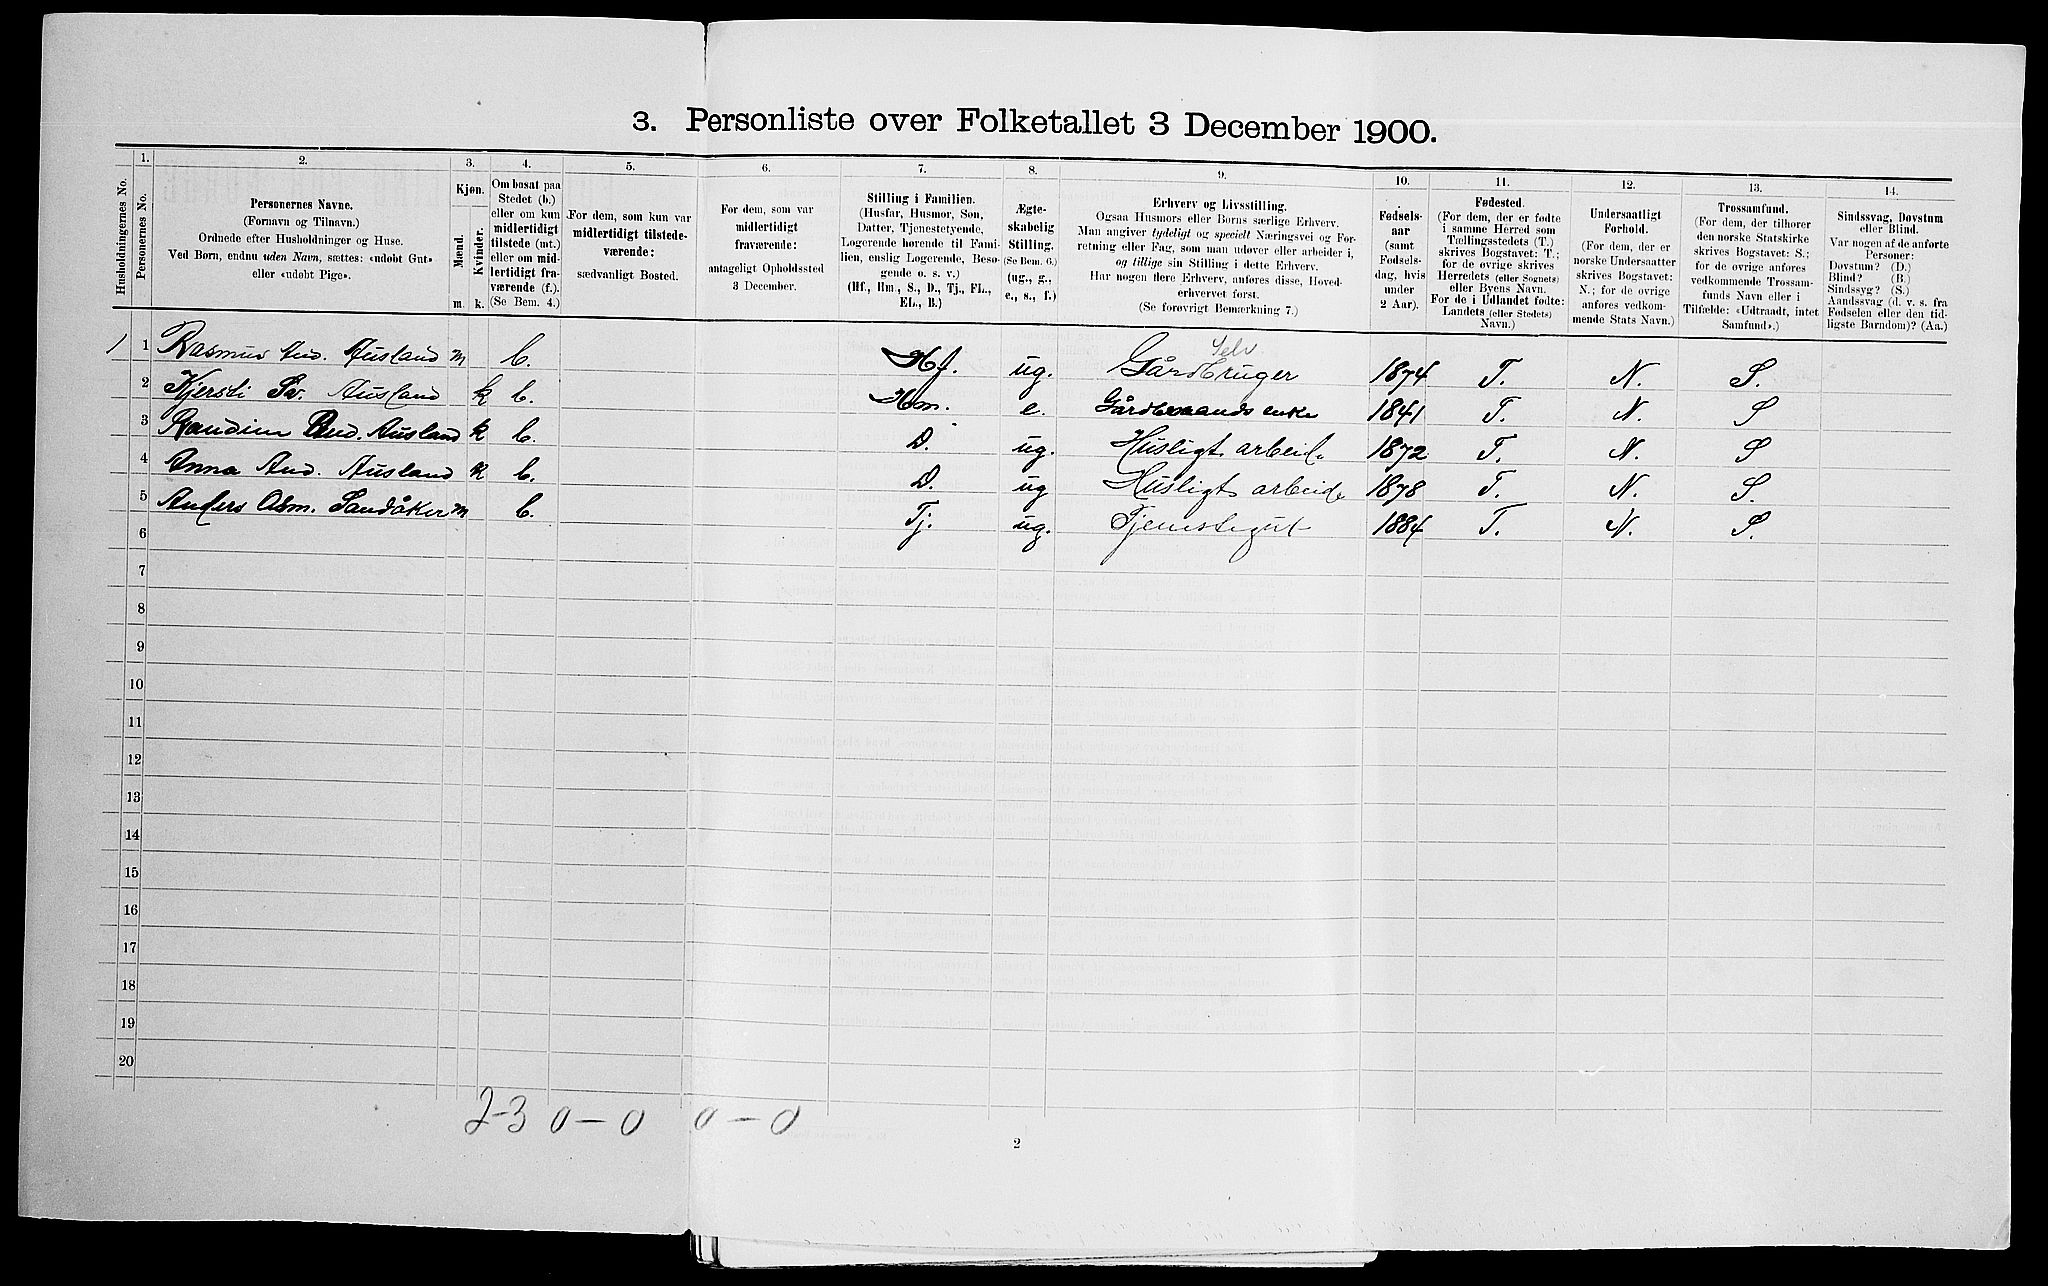 3. Personliste over Folketallet 3 December 1900.
Husholdningernes No.
1.
Personernes No.
2.
Personernes Navne.
(Fornavn og Tilnavn.)
Ordnede efter Husholdninger og Huse.
Ved Børn, endnu uden Navn, sættes: «udobt Gut»
eller «udobt Pige».
3.
Kjøn.
Mænd.
Kvinder.
m. k.
4.
Om bosat paa
Stedet (b.)
eller om kun
midlertidigt
tilstede (mt.)
eller om mid-
lertidigt fra-
værende (f.).
(Se Bem. 4.)
5.
For dem, som kun var
midlertidigt tilstede-
værende:
sædvanligt Bosted.
6.
For dem, som var
midlertidigt
fraværende:
antageligt Opholdssted
3 December.
7.
Stilling i Familien.
(Husfar, Husmor, Søn,
Datter, Tjenestetyende,
Logerende hørende til Fami-
lien, enslig Logerende, Besø-
gende o. s. v.)
(Hf., Hm., S., D., Tj., FL.,
EL., B.)
8.
Ægte-
skabelig
Stilling.
(Se Bem. 6.)
(ug., g.,
e., s., f.)
9.
Erhverv og Livsstilling.
Ogsaa Husmors eller Børns særlige Erhverv.
Man angiver tydeligt og specielt Næringsvei og For-
retning eller Fag, som man udøver eller arbeider i,
og tillige sin Stilling i dette Erhverv.
Har nogen flere Erhverv, anføres disse, Hoved-
erhvervet først.
(Se forøvrigt Bemærkning 7.)
10.
Fødsels-
aar
(samt
Fødsels-
dag, hvis
under
2 Aar).
11.
Fødested.
(For dem, der er fødte
i samme Herred som
Tællingsstedets (T.)
skrives Bogstavet: T.;
for de øvrige skrives
Herredets (eller Sognets)
eller Byens Navn.
For de i Udlandet fødte:
Landets (eller Stedets)
Navn.)
12.
Undersaatligt
Forhold.
(For dem, der er
norske Undersaatter
skrives Bogstavet:
N.; for de øvrige
anføres vedkom-
mende Stats Navn.)
13.
Trossamfund.
(For dem, der tilhører
den norske Statskirke
skrives Bogstavet: S.;
for de øvrige anføres
vedkommende Trossam-
funds Navn eller i
Tilfælde: «Udtraadt, intet
Samfund».)
14.
Sindssvag, Døvstum
eller Blind.
Var nogen af de anførte
Personer:
Døvstum? (D.)
Blind? (B.)
Sindssyg? (S.)
Aandssvag (d. v. s. fra
Fødselen eller den tid-
ligste Barndom)? (Aa.)
Selv
1 1 Rasmus And. Ausland m b. Hf. ug. Gårdbruger 1874 T. N. S.
2 Kjersti Sv. Ausland k b. Hm. e. Gårdbrugs enke 1841 T. N. S
3 Randine And. Ausland k b. D. ug. Husligt arbeid. 1872 T. N. S
4 Anna And. Ausland k b. D. ug Husligt arbeide 1878 T. N. S.
5 Anders Asm. Sandåker m b. Tj. ug. Tjenestegut 1884 T. N. S.
6
7
8
9
10
11
12
13
14
15
16
17
18
19
20
2-3 0-0 0-0
2